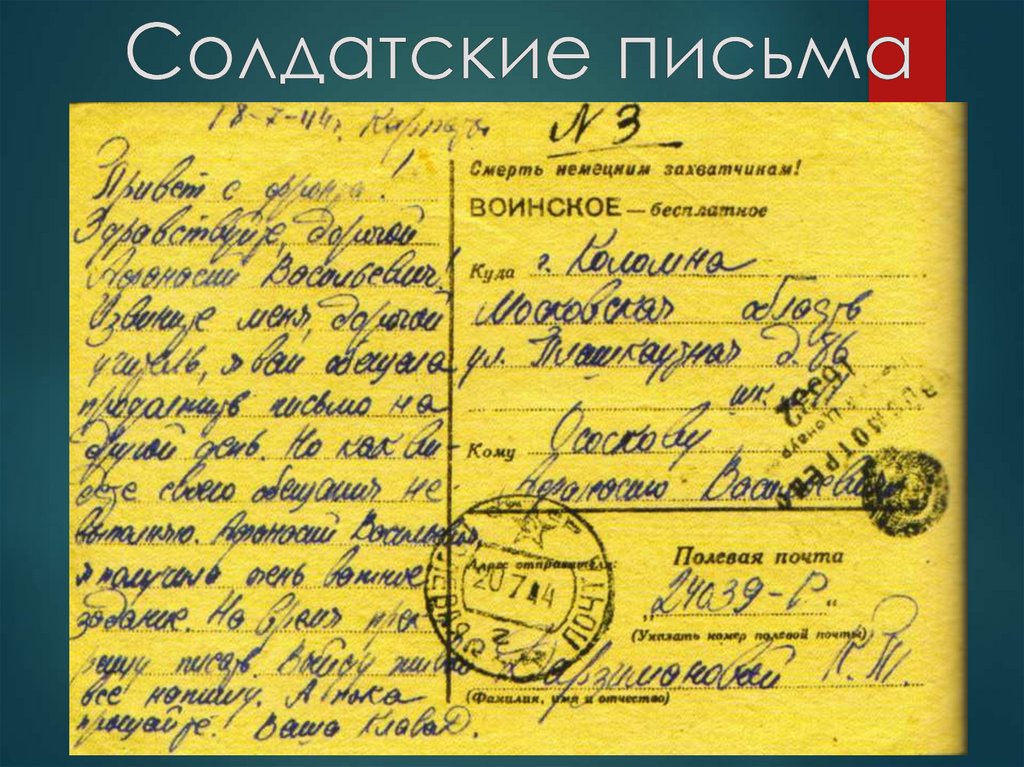 Солдатские письма
18-7-44 г. Карпаты
N 3
Привет с фронта!
Здравствуйте, дорогой
Афонасий Васильевич!
Извините меня, дорогой
учитель, я вам обещала
продолжить письмо на
другой день. Но как ви-
дите своего обещания не
выполняю. Афонасий Васильевич,
я получила очень важное
задание. На время прек-
ращу писать. Выйду живой
все напишу. А пока
прощайте! Ваша Клава
Смерть немецким захватчикам!
ВОИНСКОЕ — бесплатное
Куда г. Коломна
Московская область
ул. Плашкаутная д. 86
шк.
Кому Ососкову
Афанасию Васильевичу
Адрес отправителя:
20 7 44
ПОЧТ
Полевая почта
"24039-Р"
(Указать номер полевой почты)
К. Т.
(Фамилия, имя и отчество)